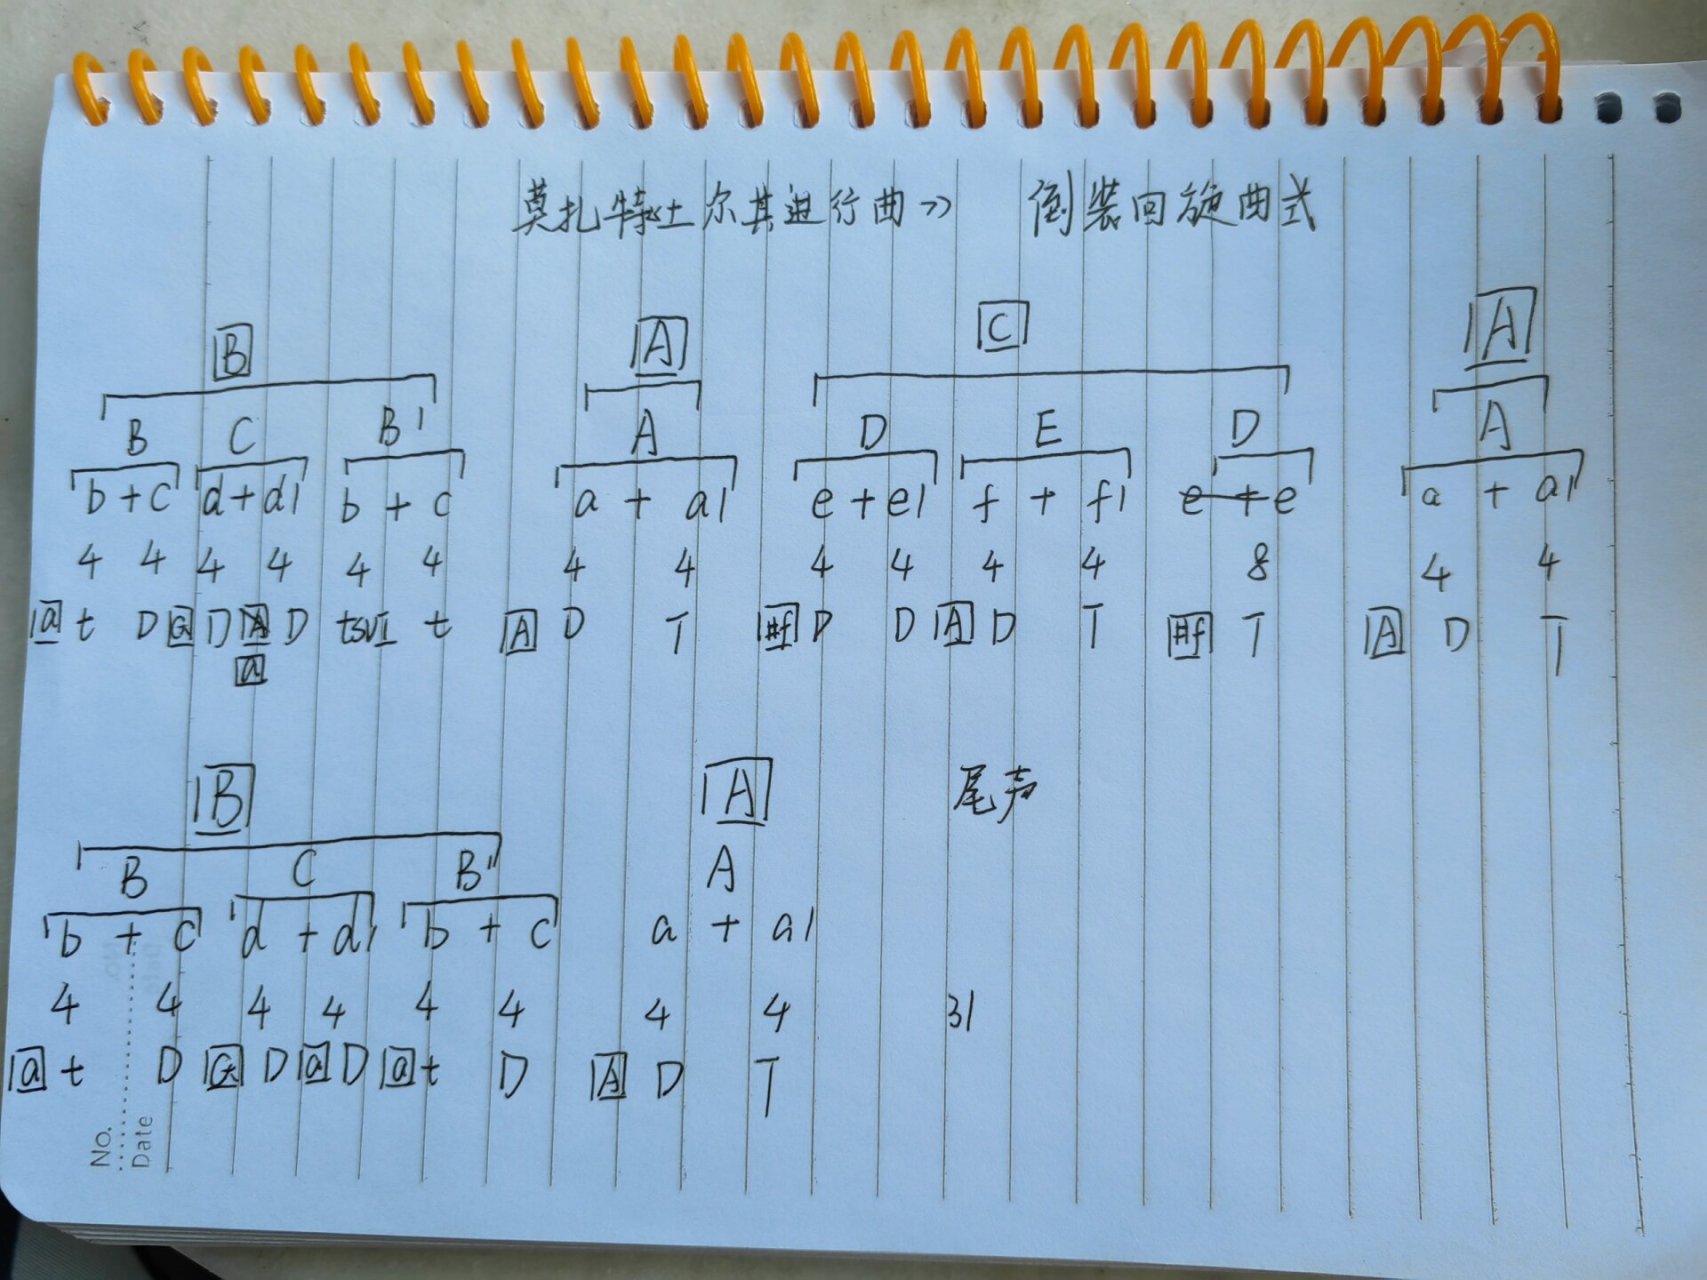 莫扎特《土尔其进行曲》 倒装回旋曲式
B A C A
B C B1 A D E D A
b + c d + d1 b + c a + a1 e + e1 f + f1 e + e a + a1
4 4 4 4 4 4 4 4 4 4 4 4 8 4 4
a t D G D A D tsVI t A D T #f D D A D T #f T A D T
a
B A 尾声
B C B1 A
b + c d + d1 b + c a + a1
4 4 4 4 4 4 4 4 31
a t D G D a D a t D A D T
No.
Date